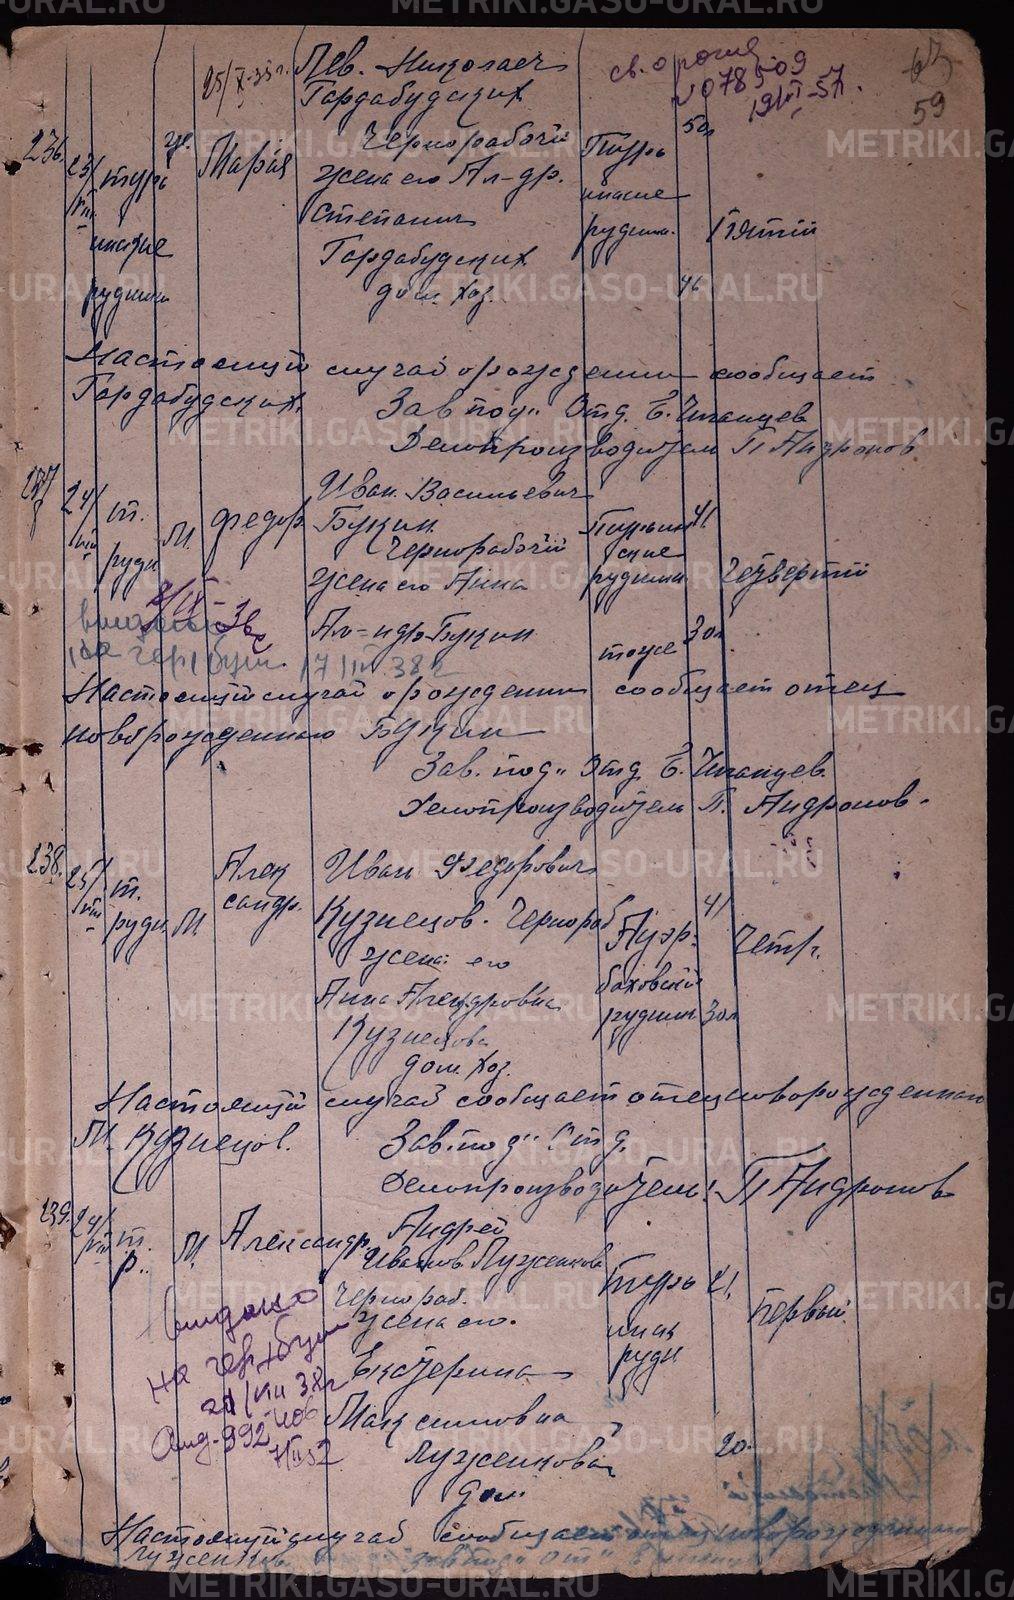 59
25/X-35 г. Лев. Николаев
Гордабудских
св. о рожд
N 078509
19/III-57.
236. 23/VIII турь инские рудники ж. Мария
Чернорабочий
жена его Ал-др.
Степанич
Гордабудских
дом. хоз.
Турь инские рудники. 50л 46 Пятый
Настоящий случай о рождении сообщает
Гордабудских.
Зав под" Отд. Е. Чипанцев
Делопроизводитель П Андронов
237 24/VIII т. рудн М. Федор
Иван. Васильевич
Букин.
Чернорабочий
жена его Анна
Ал-ндр. Букин
Турьин ские рудники 41 Четвертый
тоже 30л
на чер. бум. 17/III 38 г
Настоящий случай о рождении сообщает отец
новорожденного Букин
Зав. под" Отд. Е. Чипанцев.
Делопроизводитель П. Андронов.
238. 25/VIII т. рудн М Алек сандр.
Иван Федорович
Кузнецов. Чернораб
жена его
Анна Алекдровна
Кузнецова
дом. хоз.
Ауэр баховский рудник 41 30л Четр.
Настоящий случай сообщает отец новорожденного
М. Кузнецов.
Зав. под" Отд.
Делопроизводитель: П Андронов
239. 24/VIII т. р. М. Александр
Андрей
Иванов Луженков
Чернораб.
жена его.
Екатерина
Максимовна
Луженкова
дом
Турь инск рудн 21. 20. Первый.
Выдано
на чер. бум
21/VIII 38 г
Настоящий случай сообщает отец новорожденного
Луженков
Зав под" От"